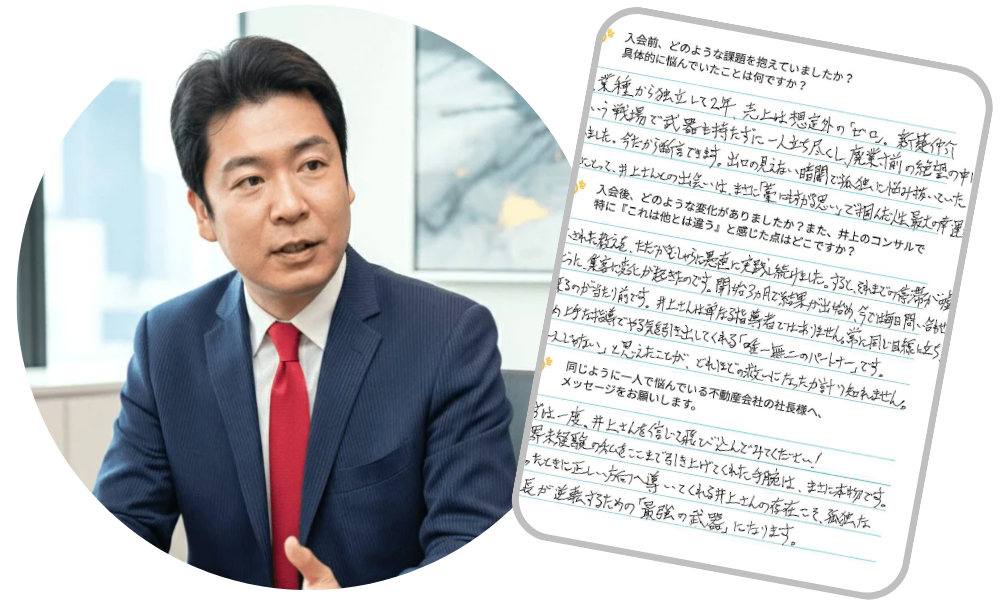 入会前、どのような課題を抱えていましたか？
具体的に悩んでいたことは何ですか？
業種から独立して2年、売上は想定外の「ゼロ」。新築仲介
いう戦場で武器も持たずに一人立ち尽くし、廃業寸前の絶望の中に
ました。今だから断言できます。出口の見えない暗闇で孤独に悩み抜いていた
にとって、井上さんとの出会いは、まさに「藁にもすがる思い」で掴んだ人生最大の幸運
入会後、どのような変化がありましたか？また、井上のコンサルで
特に『これは他とは違う』と感じた点はどこですか？
された教えを、ただがむしゃらに愚直に実践し続けました。すると、それまでの停滞が嘘
ように、集客に変化が起きたのです。開始3ヵ月で結果が出始め、今では毎日問い合わせ
来るのが当たり前です。井上さんは単なる指導者ではありません。常に同じ目線に立ち、
指導でやる気を引き出してくれる「唯一無二のパートナー」です。
一人じゃない」と思えたことが、どれほどの救いになったか計り知れません。
同じように一人で悩んでいる不動産会社の社長様へ、
メッセージをお願いします。
ずは一度、井上さんを信じて飛び込んでみてください！
界未経験の私をここまで引き上げてくれた手腕は、まさに本物です。
ったときに正しい方向へ導いてくれる井上さんの存在こそ、孤独な
長が逆転するための「最強の武器」になります。